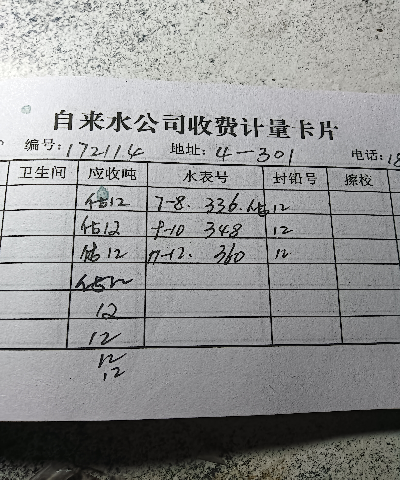 自来水公司收费计量卡片
编号:172114 地址:4-301 电话:18
卫生间 应收吨 水表号 封铅号 擦校
估12 7-8. 336.估12
估12 9-10 348 12
估12 11-12. 360 12
估12
12
12
12
12